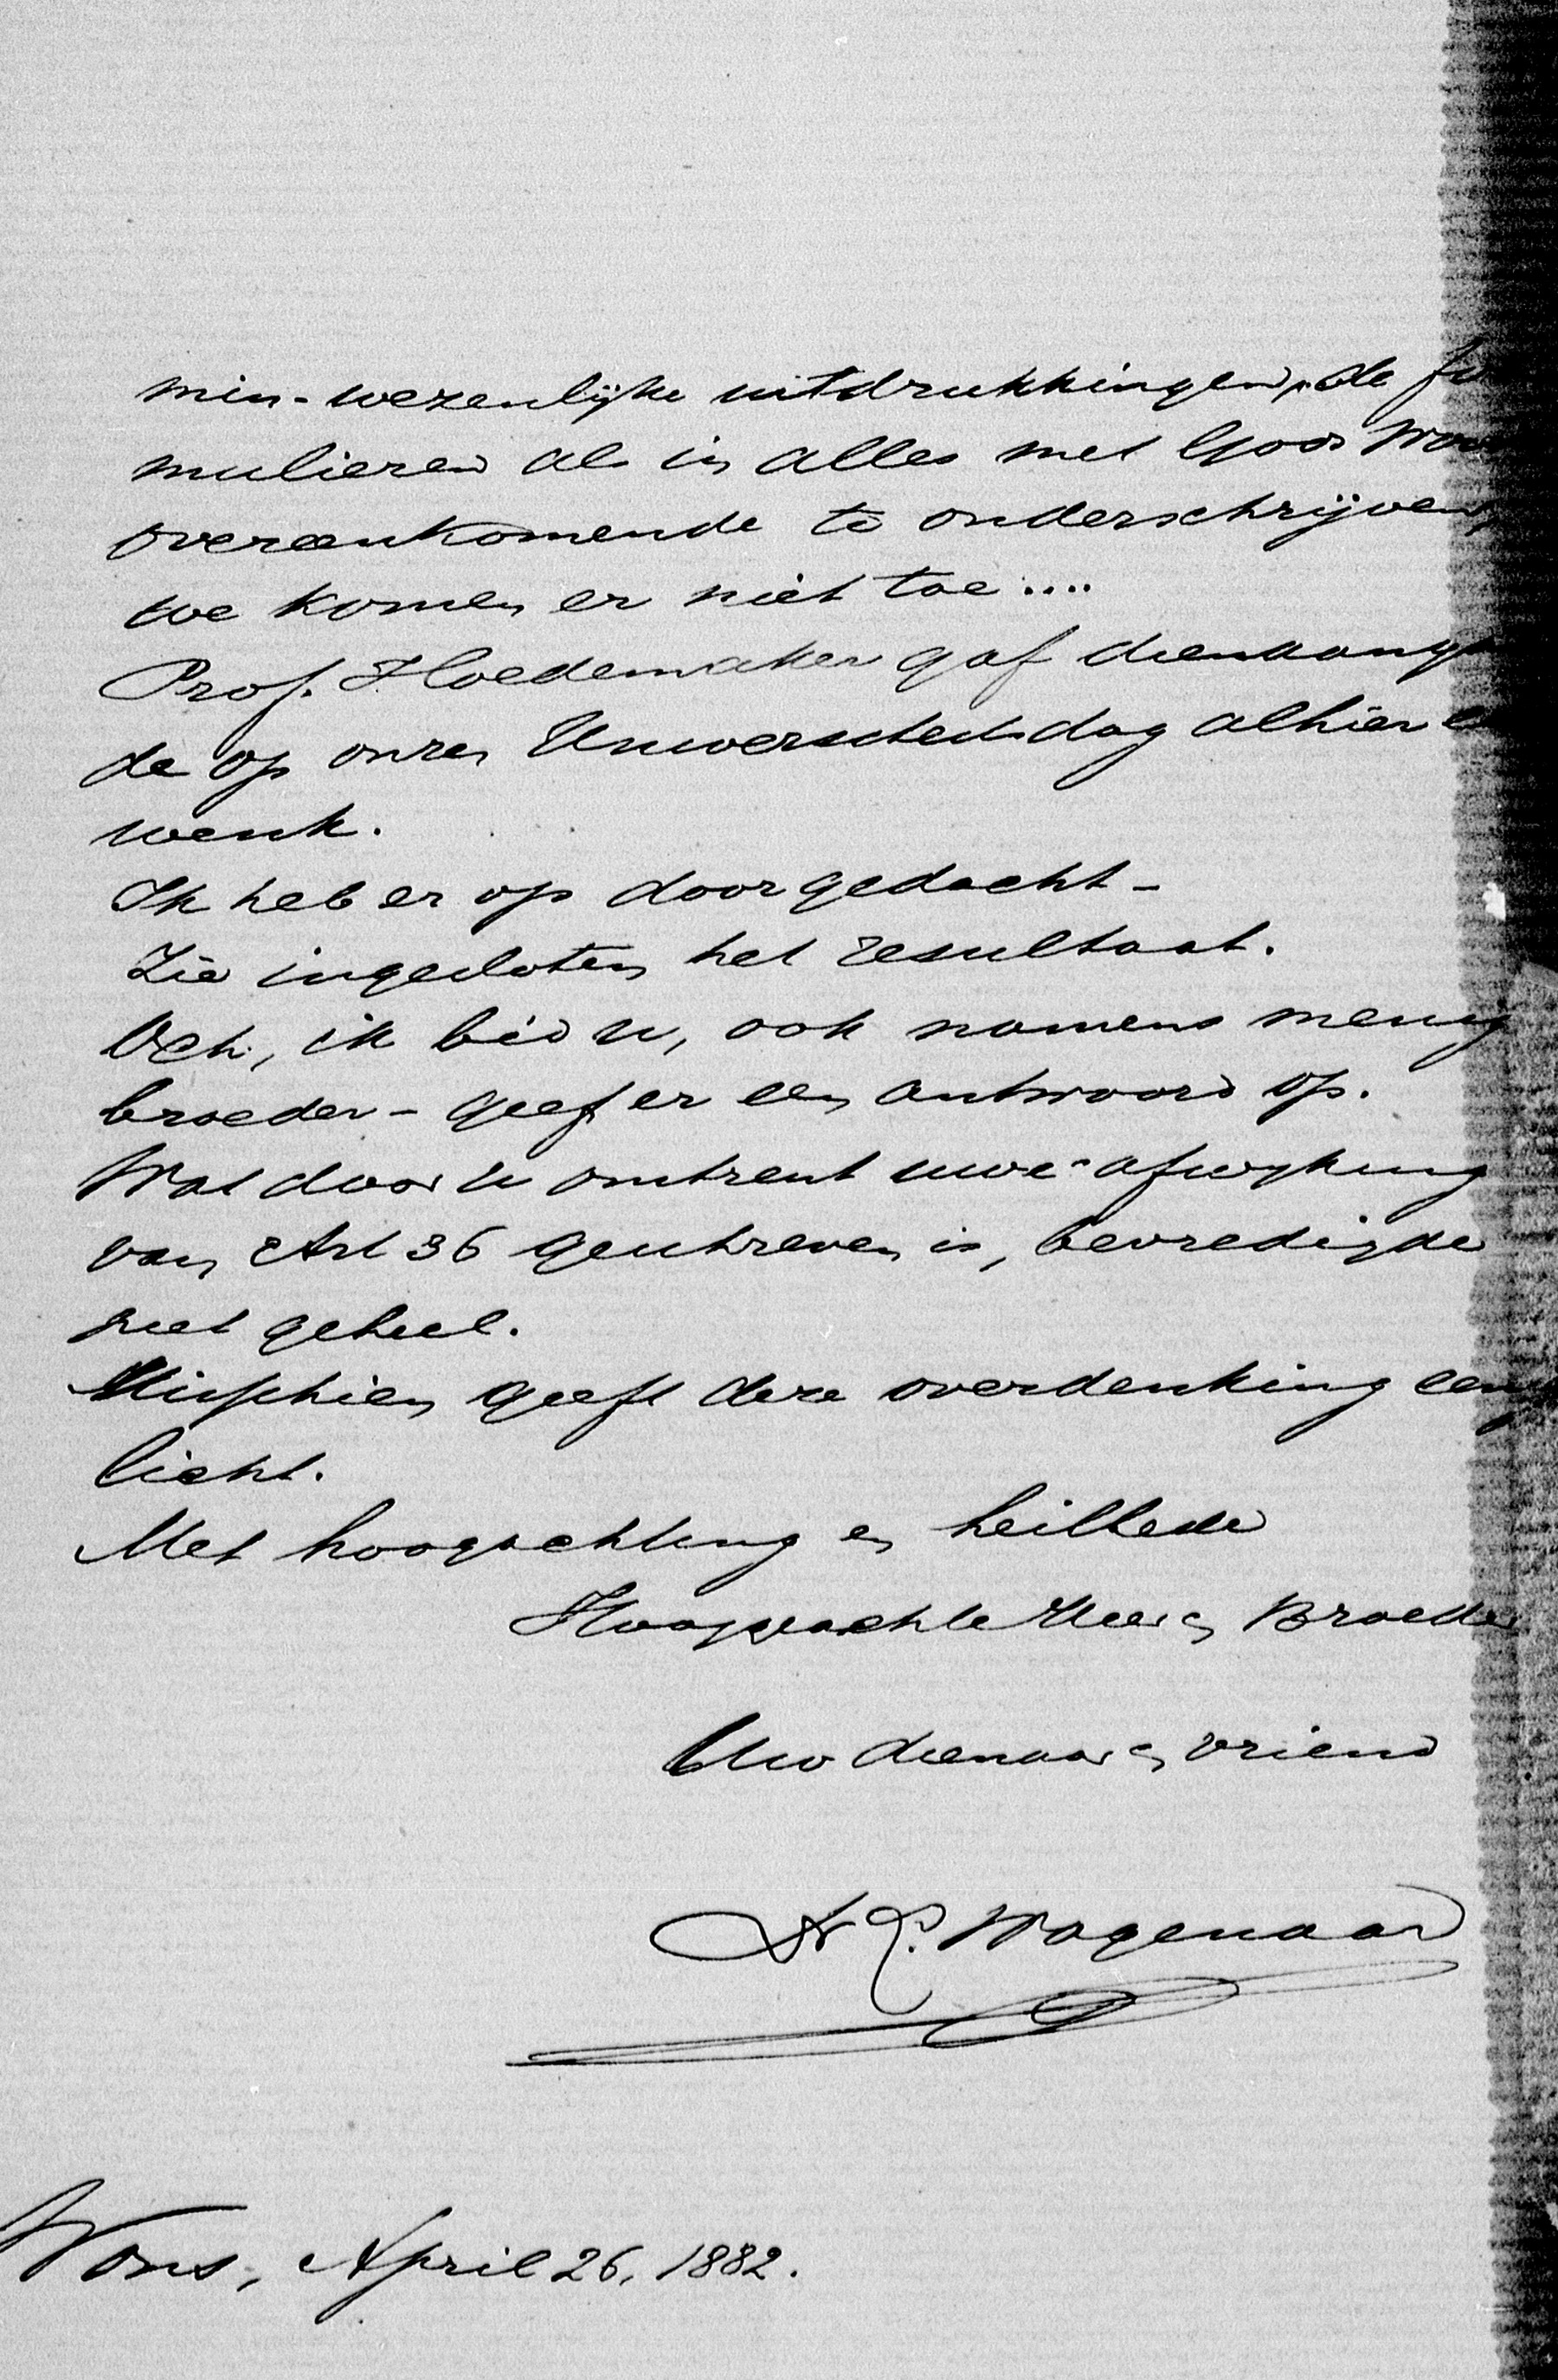 min-wezenlijke uitdrukkingen, de for
mulieren als in alles met Gods Woord
overeenkomende te onderschrijven,
we komen er niet toe....
Prof. Hoedemaker gaf dienaangaan
de op onzen Universiteitsdag alhier een
wenk.
Ik heb er op doorgedacht -
Zie ingesloten het resultaat.
Och, ik bid u, ook namens menig
broeder - geef er een antwoord op.
Wat door u omtrent uwe afwijking
van Art 36 geschreven is, bevredigde
niet geheel.
Misschien geeft deze overdenking eenig
licht.
Met hoogachting en heilbede
Hooggeachte Heer en Broeder
Uw dienaar en vriend
Dr L. Wagenaar
Wons, April 26, 1882.